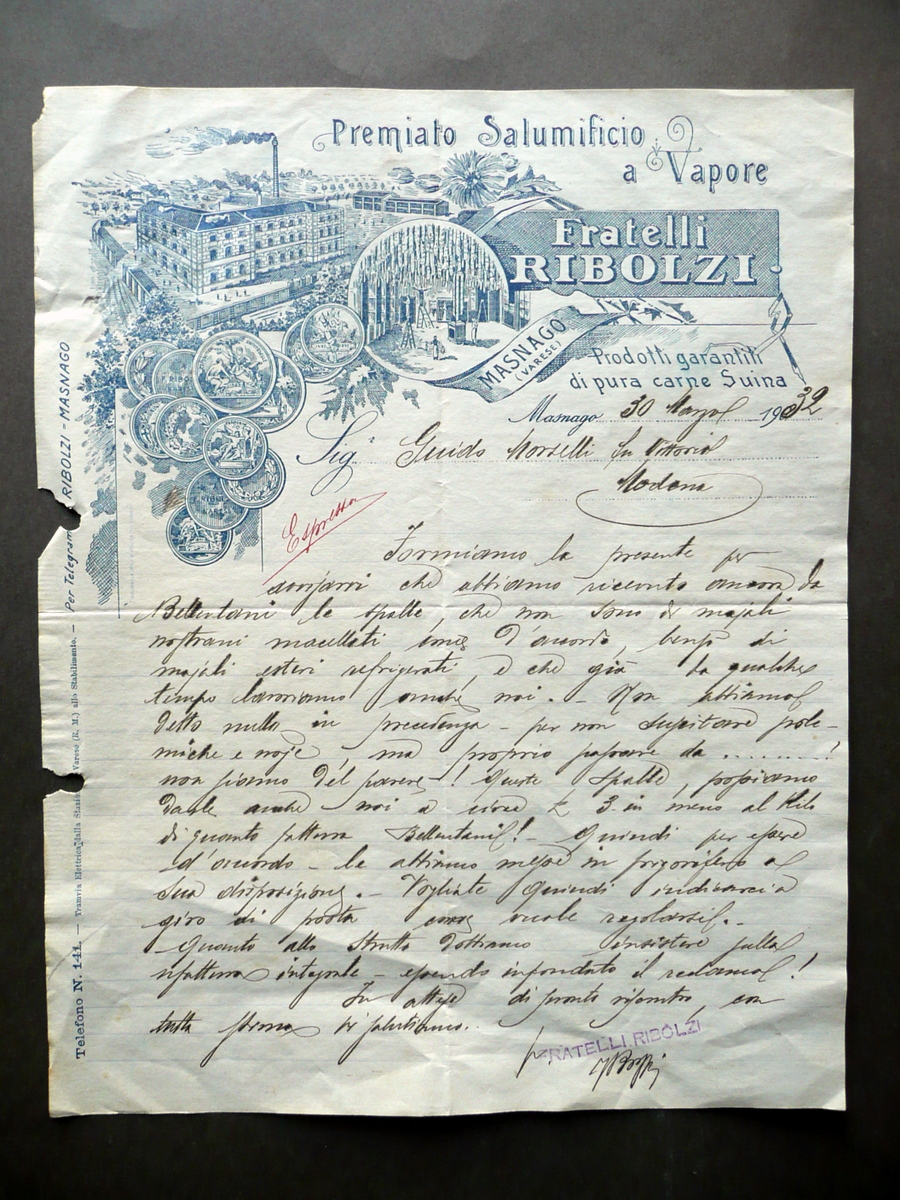 Premiato Salumificio
a Vapore
Fratelli
RIBOLZI
MASNAGO
(VARESE)
Prodotti garantiti
di pura carne Suina
Masnago 30 Marzo 1932
Sig. Guido Morselli fu Vittorio
Modena
Espresso
Formiamo la presente per
che abbiamo ricevuto ancora da
Bellentani le spalle, che non sono di majali
nostrani macellati come d'accordo, bensì di
majali esteri refrigerati, e che già da qualche
tempo lavoriamo anche noi. - Non abbiamo
detto nulla in precedenza - per non suscitare pole-
miche e noje, ma proprio passare da ..........!
non siamo del parere! Queste spalle, possiamo
darle anche noi a circa £ 3 in meno al Kilo
di quanto fattura Bellentani! - Quindi per essere
d'accordo - le abbiamo messe in frigorifero a
Sua disposizione. - Vogliate quindi indicarci a
giro di posta come regolarsi.
Quanto allo Strutto dobbiamo insistere sulla
fattura integrale - essendo infondato il reclamo!
In attesa di pronto riscontro, con
tutta stima vi salutiamo.
p. FRATELLI RIBOLZI
Telefono N. 141. — Tramvia Elettrica dalla Stazione Varese (R. M.) allo Stabilimento. — Per Telegrammi RIBOLZI - MASNAGO